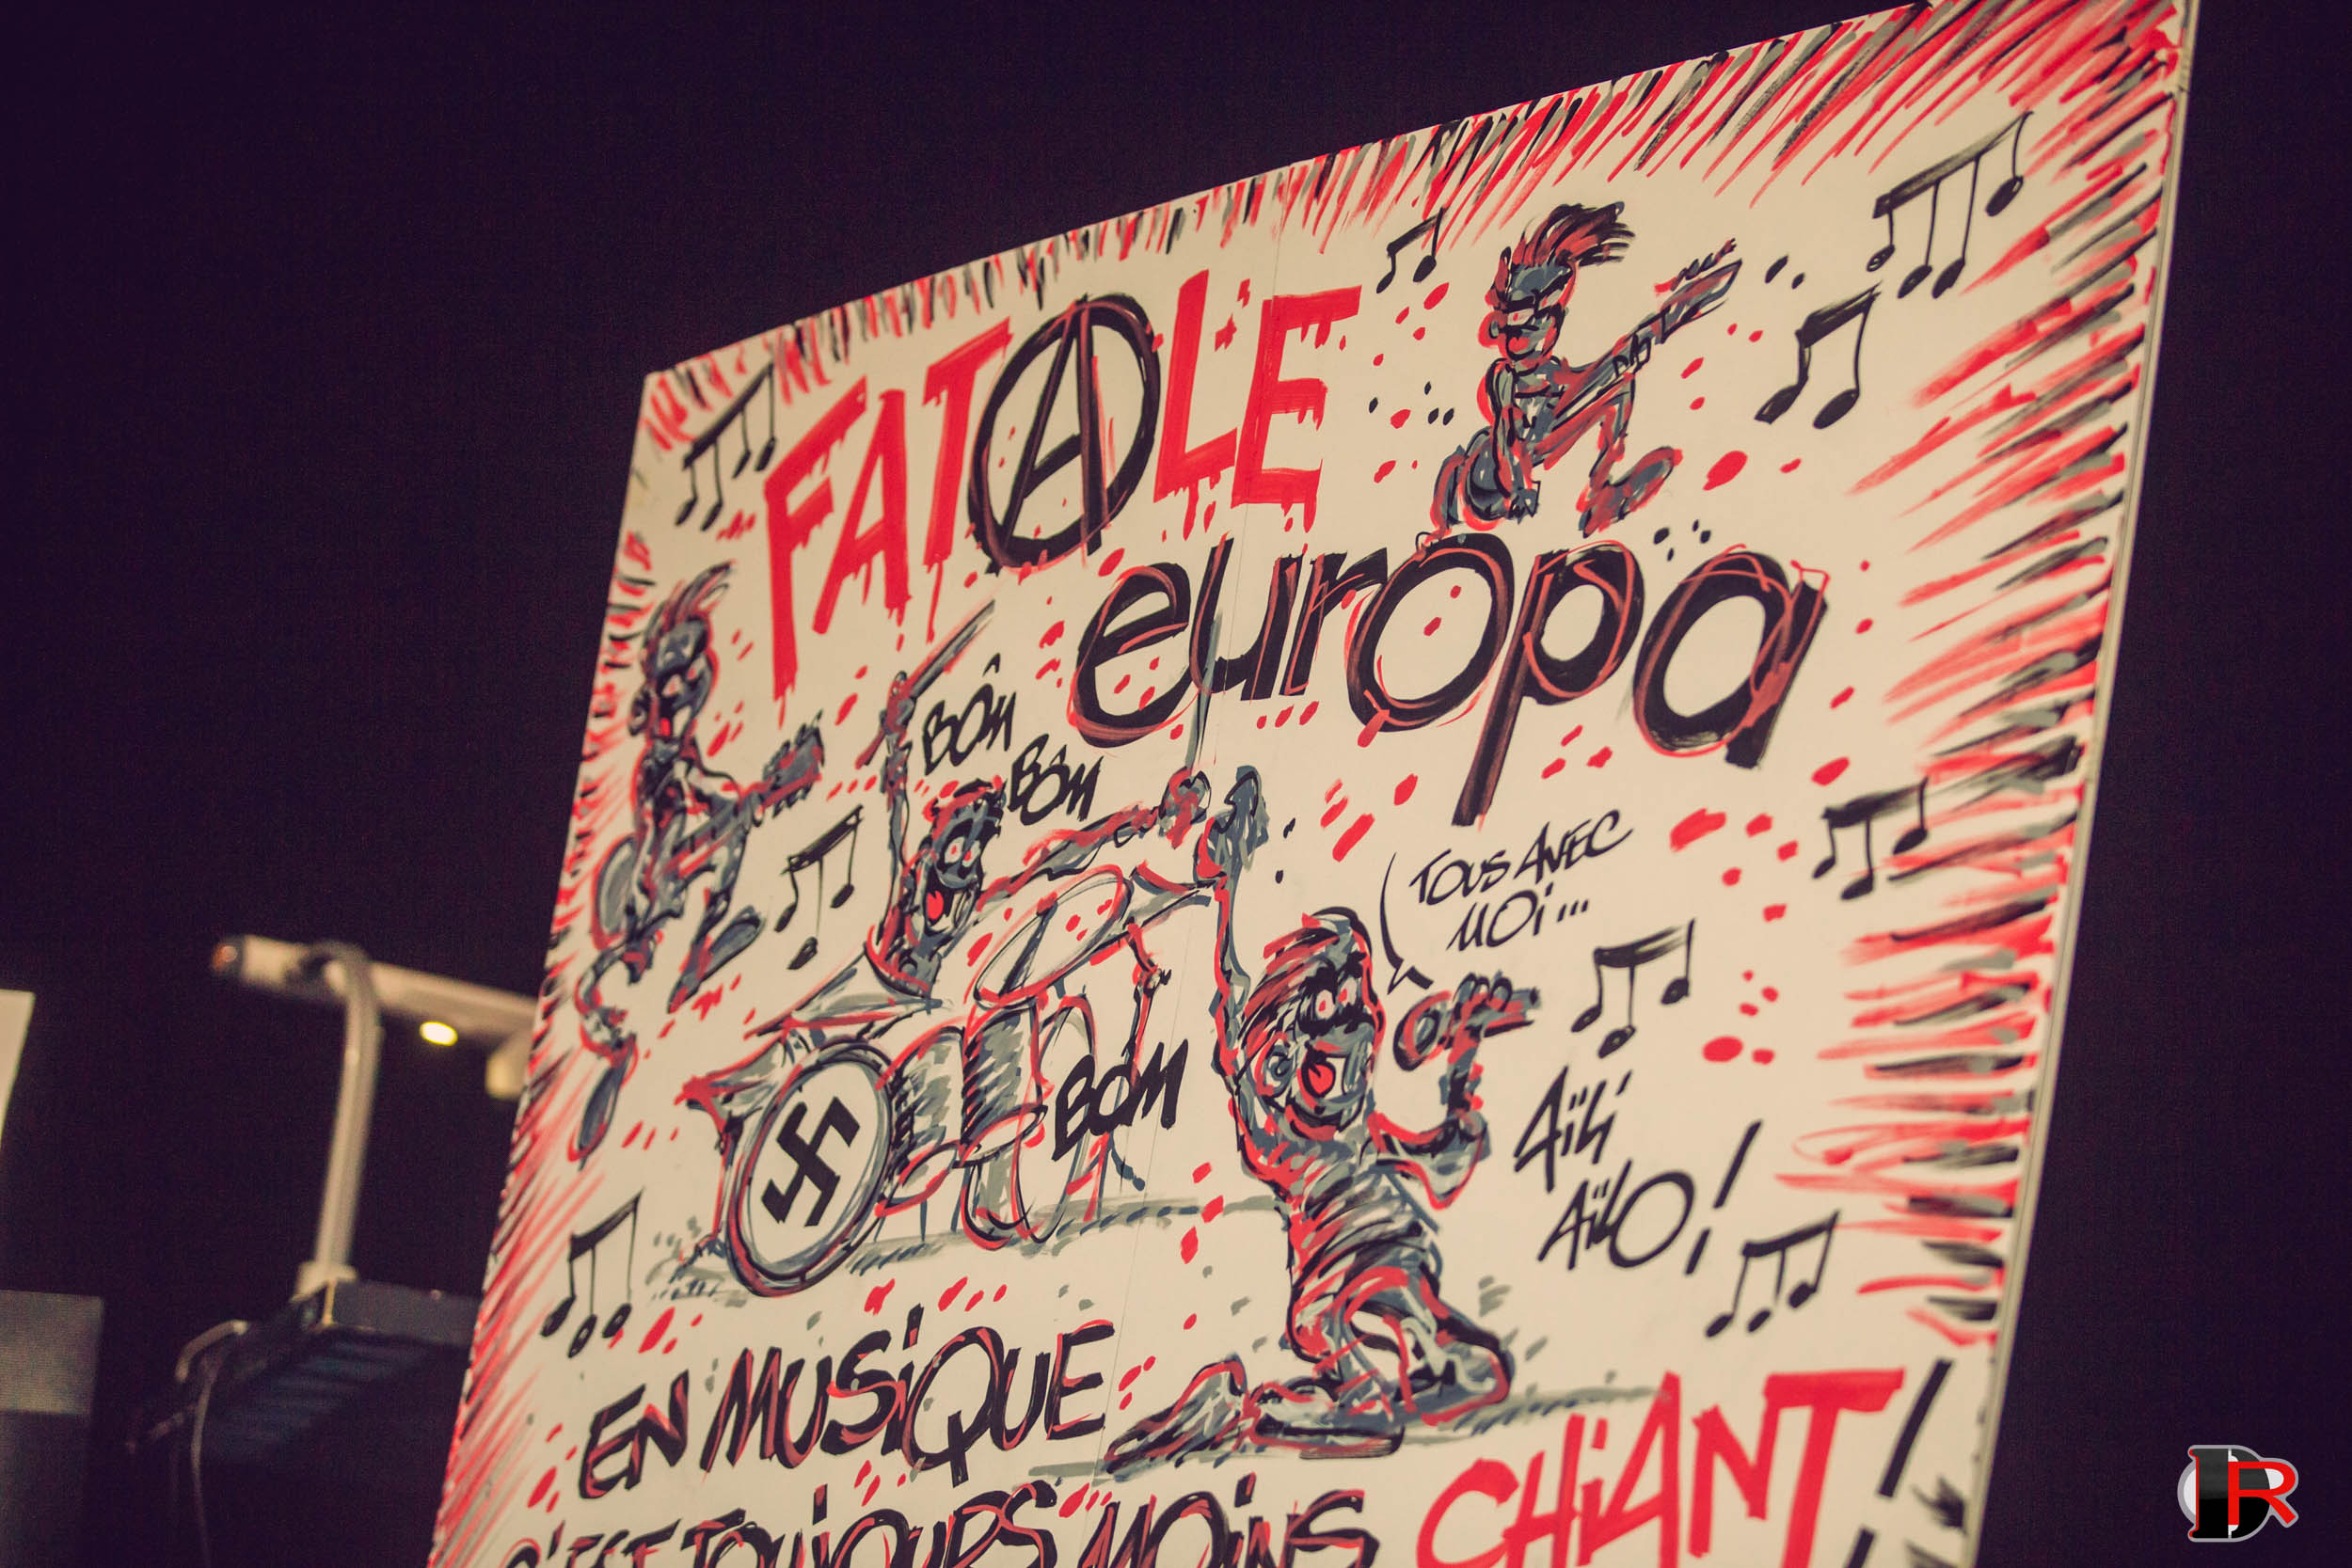 FATALE
europa
BOM
BOM
TOUS AVEC
MOI...
BOM
AÏLI
AÏLO!
EN MUSIQUE
C'EST TOUJOURS MOINS CHIANT!
DR